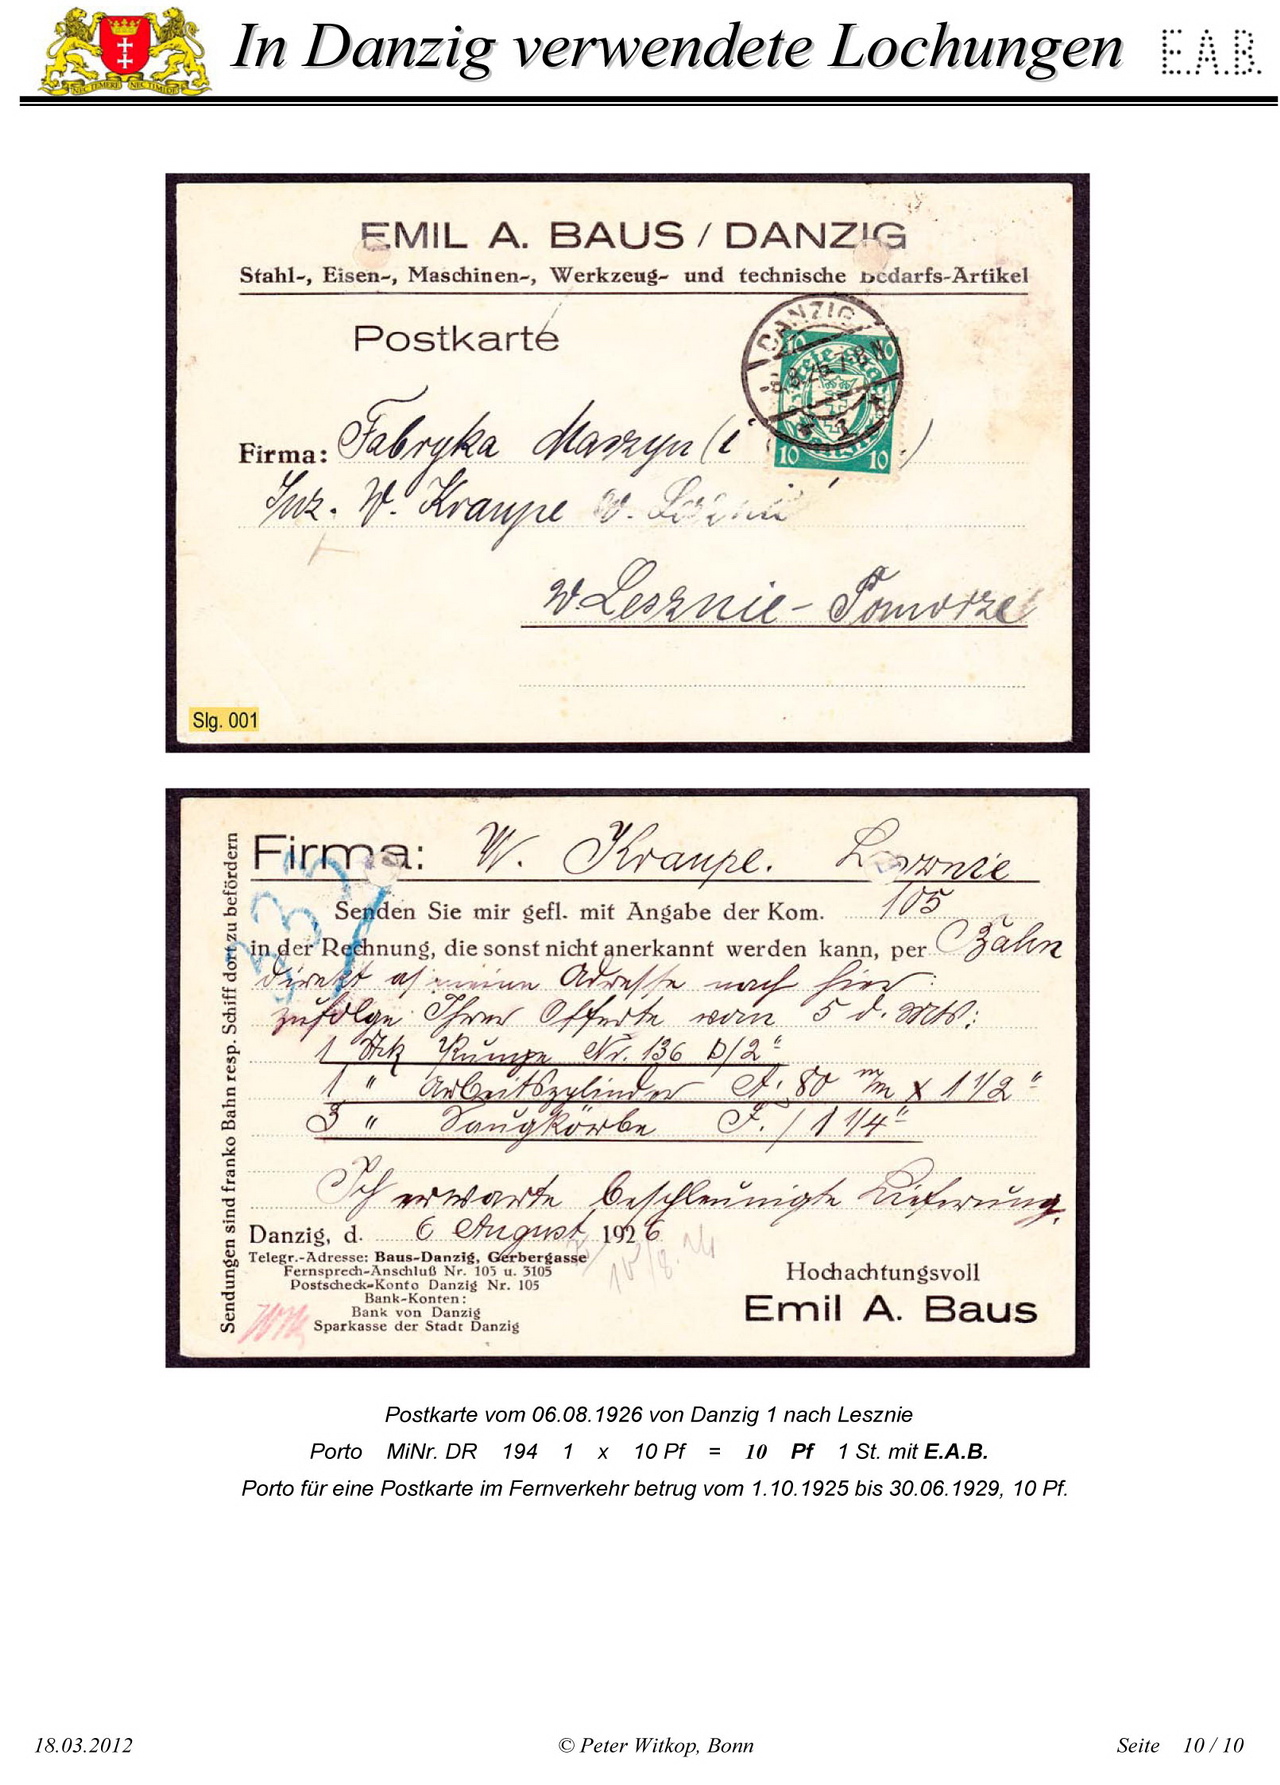 NEC TEMERE NEC TIMIDE
In Danzig verwendete Lochungen
E.A.B.
EMIL A. BAUS / DANZIG
Stahl-, Eisen-, Maschinen-, Werkzeug- und technische Bedarfs-Artikel
Postkarte
DANZIG
6.8.26.7-8 N
1
10 10
10 10
Firma: Fabryka Maszyn (i
Inz. W. Kraupe w. Lesznie
w Lesznie - Pomorze
Slg. 001
Sendungen sind franko Bahn resp. Schiff dort zu befördern
Firma: W. Kraupe. Lesznie
Senden Sie mir gefl. mit Angabe der Kom. 105
in der Rechnung, die sonst nicht anerkannt werden kann, per Bahn
direkt an meine Adresse nach hier
zufolge Ihrer Offerte vom 5 d. Mts:
1 Stck Pumpe Nr. 136 D/2"
1 " Arbeitszylinder A: 80 m/m x 1 1/2"
3 " Saugkörbe F. / 1 1/4"
Ich erwarte beschleunigte Lieferung.
Danzig, d. 6 August 1926
Telegr.-Adresse: Baus-Danzig, Gerbergasse
Fernsprech-Anschluß Nr. 105 u. 3105
Postscheck-Konto Danzig Nr. 105
Bank-Konten:
Bank von Danzig
Sparkasse der Stadt Danzig
Hochachtungsvoll
Emil A. Baus
Postkarte vom 06.08.1926 von Danzig 1 nach Lesznie
Porto MiNr. DR 194 1 x 10 Pf = 10 Pf 1 St. mit E.A.B.
Porto für eine Postkarte im Fernverkehr betrug vom 1.10.1925 bis 30.06.1929, 10 Pf.
18.03.2012
© Peter Witkop, Bonn
Seite 10 / 10